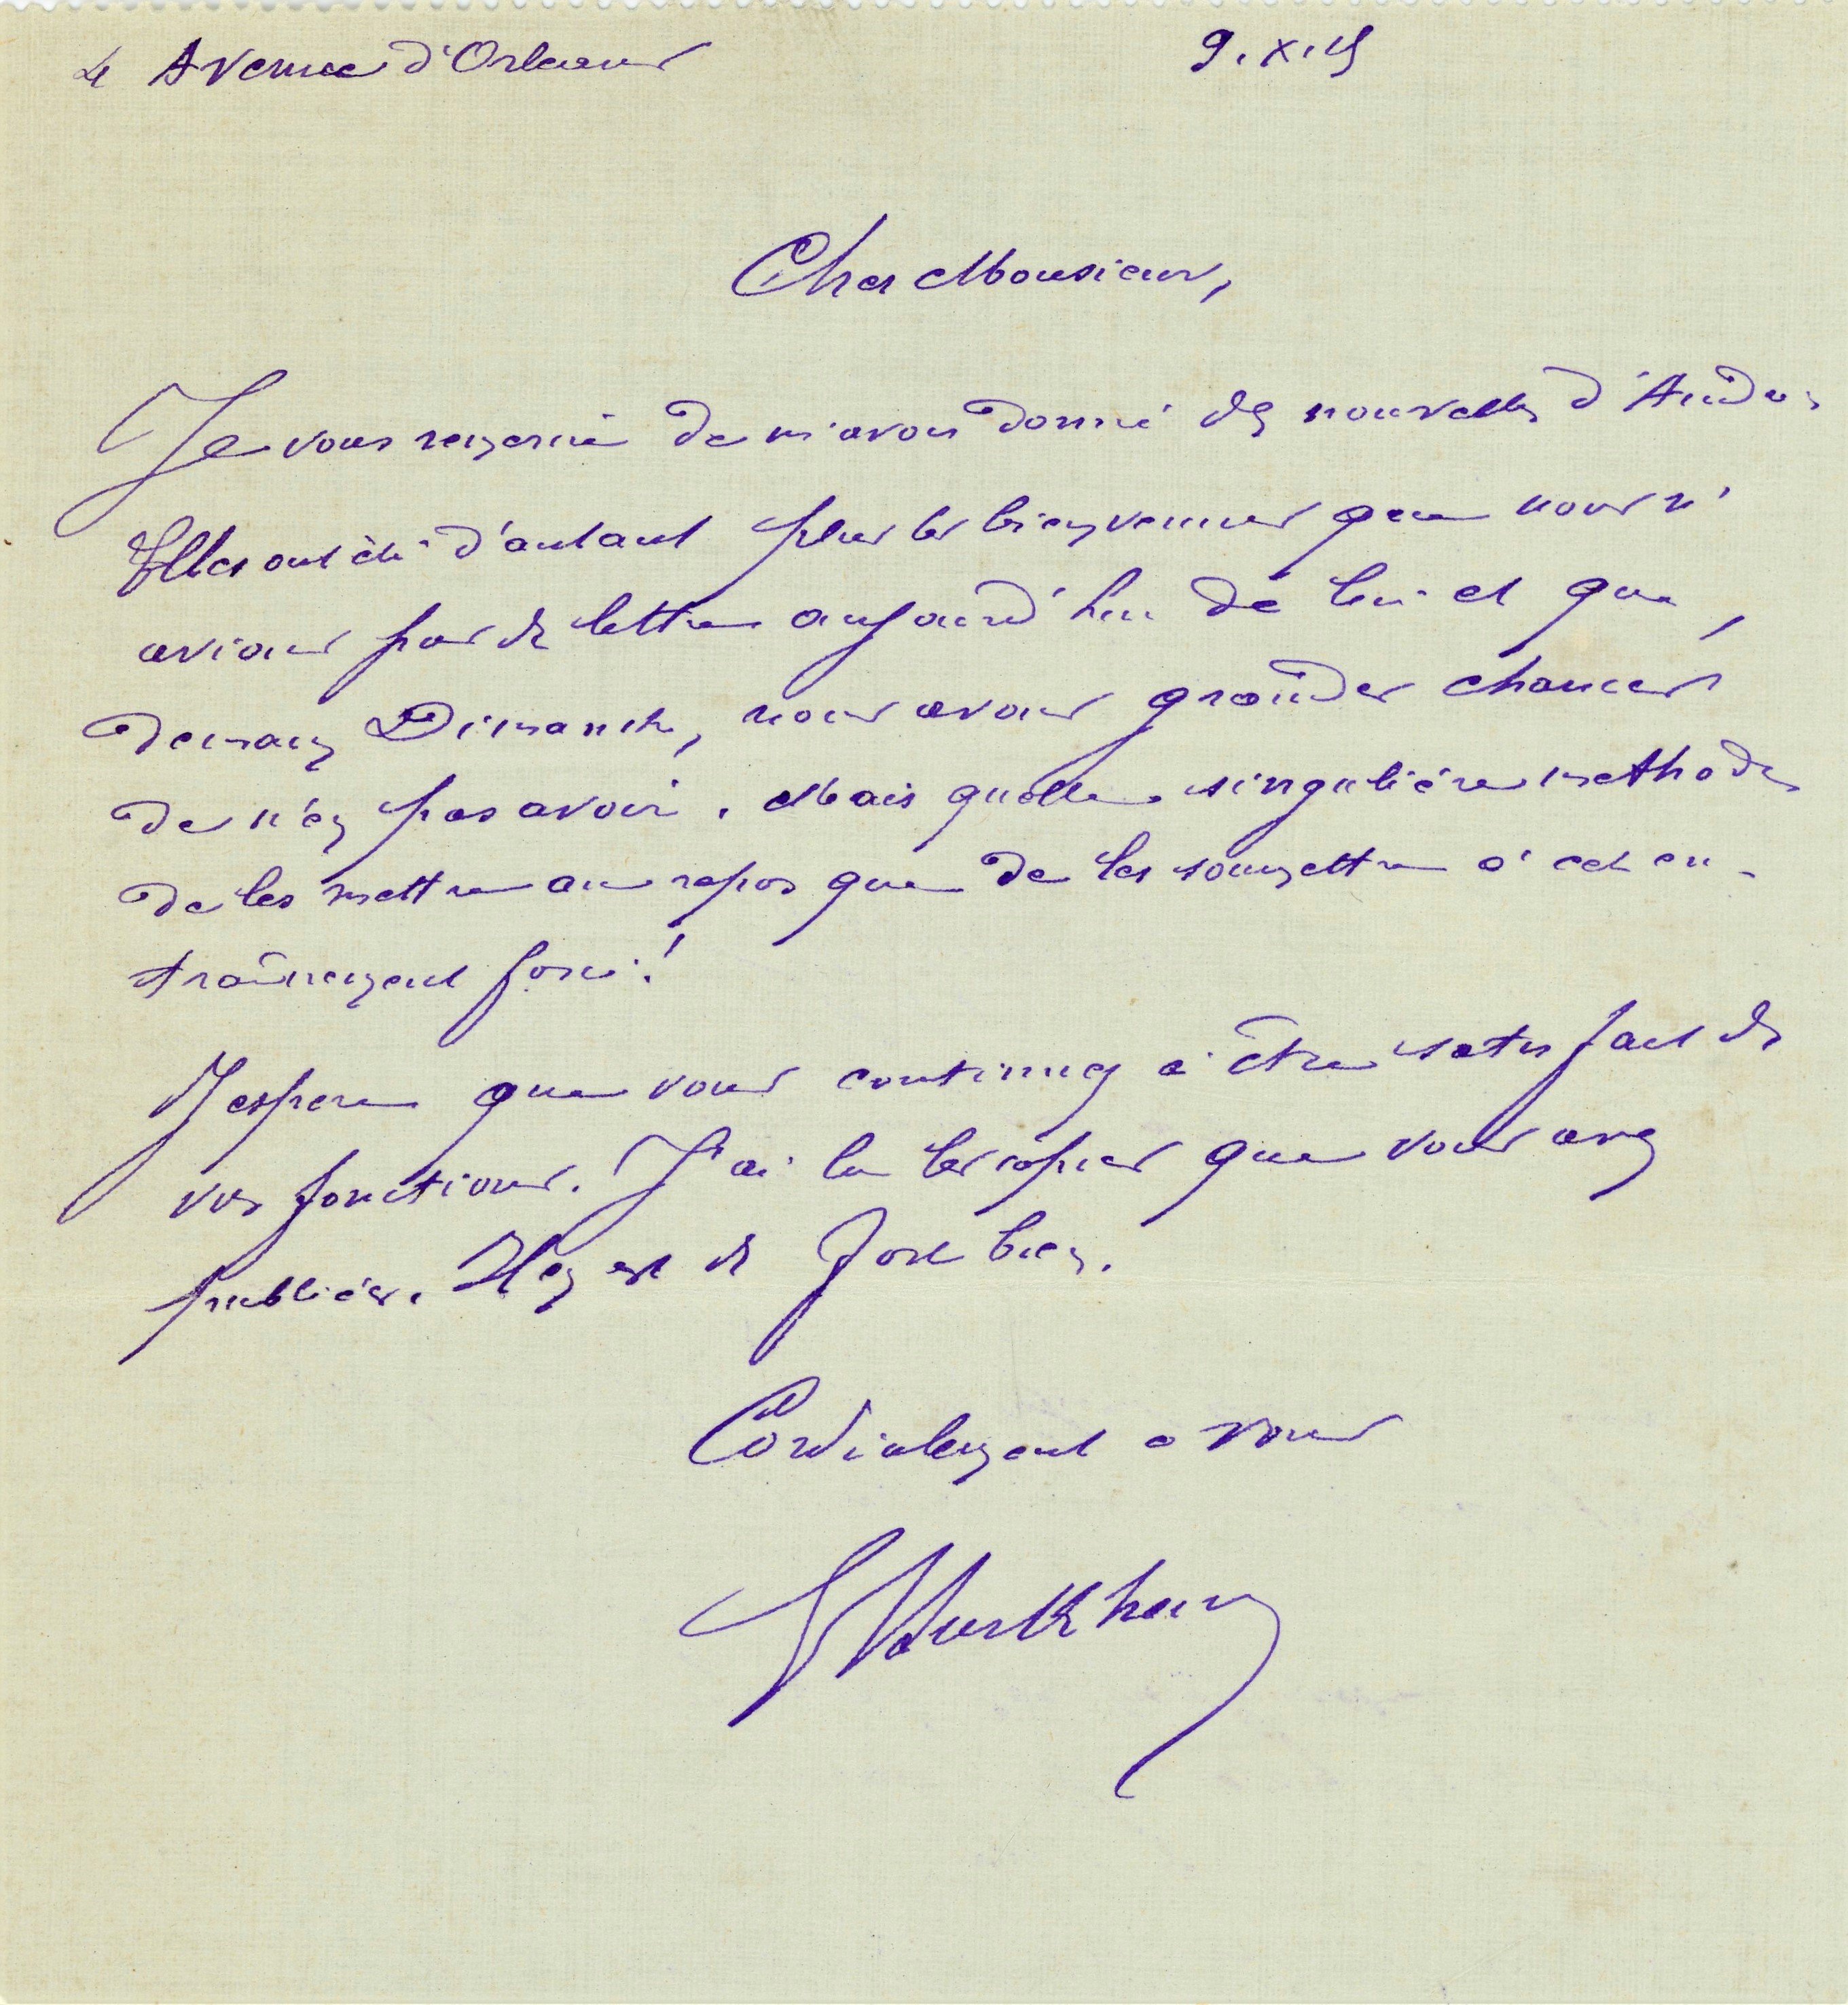 4 Avenue d'Orléans 9.X.15
Cher Monsieur,
Je vous remercie de m'avoir donné des nouvelles d'
Elles ont été d'autant plus les bienvenues que nous n'
avions pas de lettre aujourd'hui de lui et que,
demain Dimanche, nous avons grandes chances
de n'en pas avoir. Mais quelle singulière méthode
de les mettre au repos que de les soumettre à cet en-
traînement forcé!
J'espère que vous continuez à être satisfait de
vos fonctions. J'ai lu les copies que vous avez
publiées. Il en est de fort bien.
Cordialement à vous